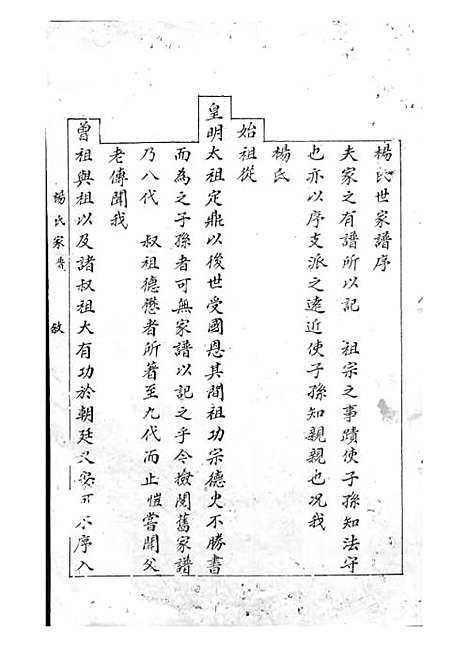 楊氏世家譜序
夫家之有譜所以記　祖宗之事蹟使子孫知法守
也亦以序支派之遠近使子孫知親親也况我
楊氏
始祖從
皇明太祖定鼎以後世受國恩其間祖功宗德史不勝書
而為之子孫者可無家譜以記之乎今檢閱舊家譜
乃八代　叔祖德懋者所著至九代而止愷嘗聞父
老傳聞我
曾祖與祖以及諸叔祖大有功於朝廷又安可不序入
楊氏家譜